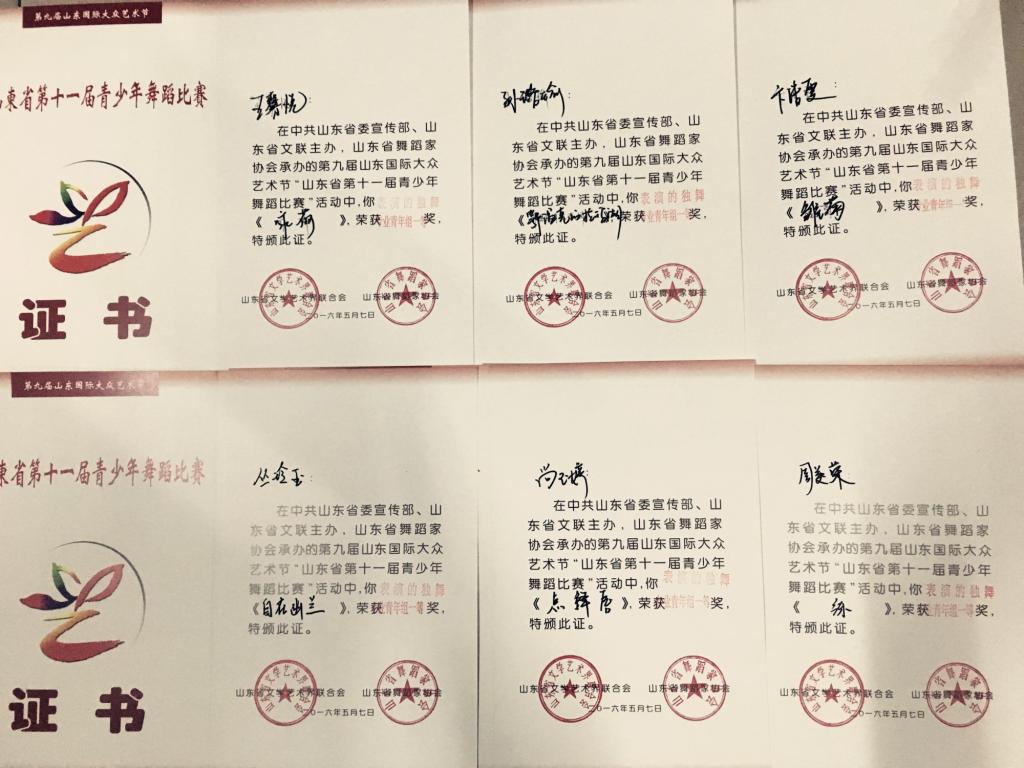 第九届山东国际大众艺术节
東省第十一届青少年舞蹈比赛
证 书
:
在中共山东省委宣传部、山
东省文联主办，山东省舞蹈家
协会承办的第九届山东国际大众
艺术节“山东省第十一届青少年
舞蹈比赛”活动中,你表演的独舞
《咏荷》,荣获业青年组一等奖,
特颁此证。
山东省文学艺术界联合会 山东省舞蹈家协会
二〇一六年五月七日
:
在中共山东省委宣传部、山
东省文联主办，山东省舞蹈家
协会承办的第九届山东国际大众
艺术节“山东省第十一届青少年
舞蹈比赛”活动中,你表演的独舞
《》荣获业青年组一等奖,
特颁此证。
山东省文学艺术界联合会 山东省舞蹈家协会
二〇一六年五月七日
:
在中共山东省委宣传部、山
东省文联主办，山东省舞蹈家
协会承办的第九届山东国际大众
艺术节“山东省第十一届青少年
舞蹈比赛”活动中,你表演的独舞
《》,荣获业青年组一奖,
特颁此证。
山东省文学艺术界联合会 山东省舞蹈家协会
二〇一六年五月七日
第九届山东国际大众艺术节
東省第十一届青少年舞蹈比赛
证 书
丛玉:
在中共山东省委宣传部、山
东省文联主办，山东省舞蹈家
协会承办的第九届山东国际大众
艺术节“山东省第十一届青少年
舞蹈比赛”活动中,你表演的独舞
《自在幽兰》,荣获业青年组一等奖,
特颁此证。
山东省文学艺术界联合会 山东省舞蹈家协会
二〇一六年五月七日
尚玉婷:
在中共山东省委宣传部、山
东省文联主办，山东省舞蹈家
协会承办的第九届山东国际大众
艺术节“山东省第十一届青少年
舞蹈比赛”活动中,你表演的独舞
《点绛唇》,荣获业青年组一等奖,
特颁此证。
山东省文学艺术界联合会 山东省舞蹈家协会
二〇一六年五月七日
周美
在中共山东省委宣传部、山
东省文联主办，山东省舞蹈家
协会承办的第九届山东国际大众
艺术节“山东省第十一届青少年
舞蹈比赛”活动中,你表演的独舞
《》,荣获业青年组一等奖,
特颁此证。
山东省文学艺术界联合会 山东省舞蹈家协会
二〇一六年五月七日